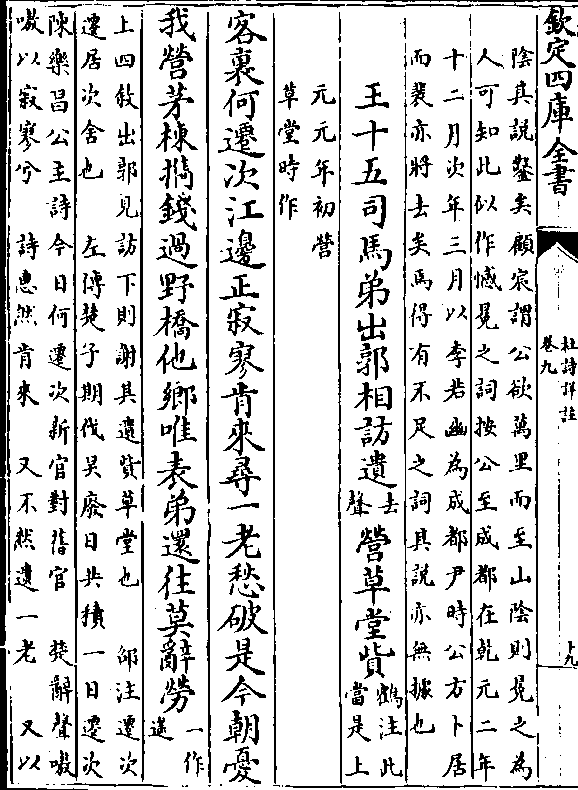 欽定四庫全書
杜詩詳註
卷九
十九
陰真說鑿矣顧宸謂公欲萬里而至山陰則冕之為
人可知此似作憾冕之詞按公至成都在乾元二年
十二月次年三月以李若幽為成都尹時公方卜居
而裴亦將去矣焉得有不足之詞其說亦無據也
王十五司馬弟出郭相訪遺去聲營草堂貲鶴注此當是上
元元年初營
草堂時作
客裏何遷次江邊正寂寥肯來尋一老愁破是今朝憂
我營茅棟攜錢過野橋他鄉唯表弟還往莫辭勞一作遙
上四敘出郭見訪下則謝其遺貲草堂也 邵注遷次
遷居次舍也 左傳楚子期伐吳廢日共積一日遷次
陳樂昌公主詩今日何遷次新官對舊官 楚辭聲嗷
嗷以寂寥兮 詩惠然肯來 又不然遺一老 又以